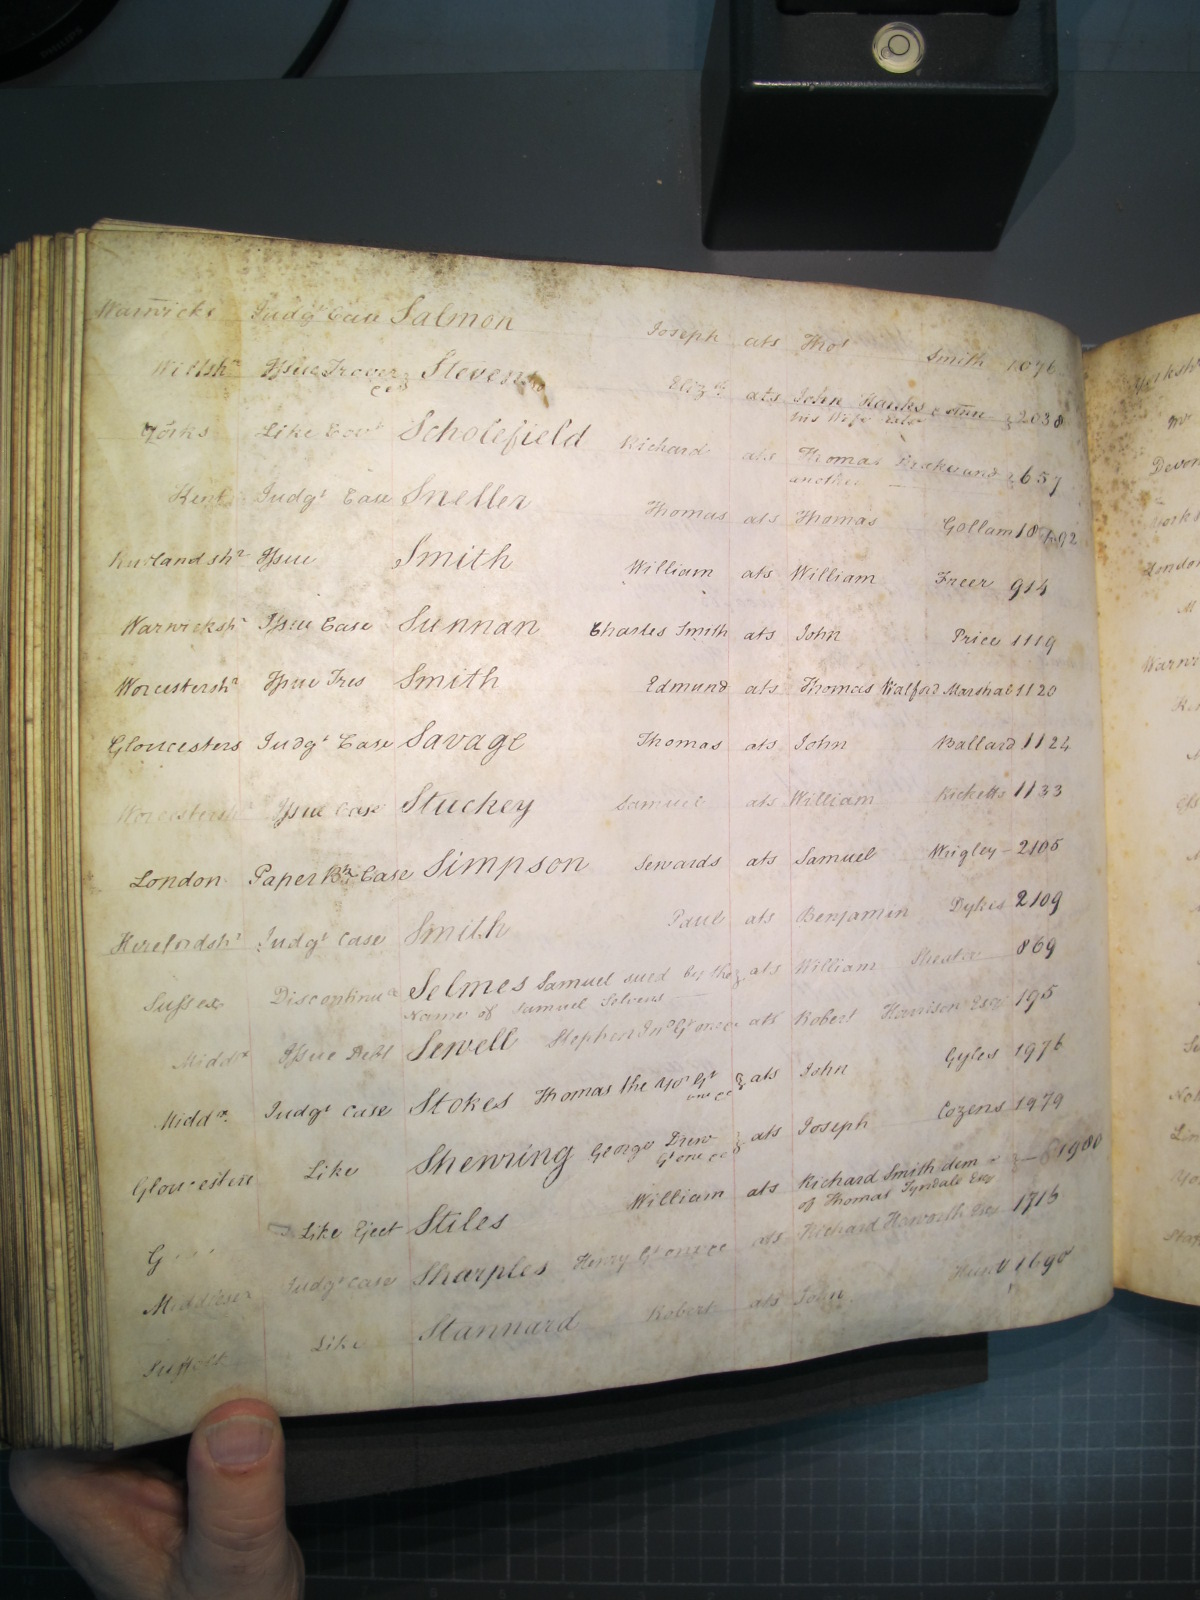 Warwicks Judgt Case Salmon Joseph ats Thos Smith 1076
Wiltshr Issue Trover Stevens Elizth ats John Hawks 2038
his Wife
Yorks Like Covt Scholefield Richard ats Thomas 657
another
Kent Judgt Case Sneller Thomas ats Thomas Gollam
Rutlandshr Issue Smith William ats William Freer 914
Warwicksh Issue Case Sunnan Charles Smith ats John Price 1119
Worcestershr Issue Tres Smith Edmund ats Thomas Walford Marshal 1120
Gloucesters Judgt Case Savage Thomas ats John Ballard 1124
Worcestersh Issue Case Stuckey Samuel ats William Ricketts 1133
London Paper Bk Case Simpson Sewards ats Samuel Wrigley 2105
Herefordshr Judgt Case Smith Paul ats Benjamin Dykes 2109
Sussex Discontinue Selmes Samuel sued by the ats William 869
Name of Samuel
Middx Issue Debt Sewell Stephen ats Robert Harrison Esqr 195
Middx Judgt Case Stokes Thomas the yor Gt ats John Gyles 1976
one &c
Gloucesters Like Shewring George Drew ats Joseph Cozens 1979
Gt one &c
G Like Eject Stiles William ats Richard Smith dem 1980
of Thomas Tyndale Esqr
Middlesex Judgt Case Sharples Henry Gt one &c ats Richard Haworth Esqr 1715
Suffolk Like Stannard Robert ats John 1690
Yorksh
Devon
Yorks
London
Warwi